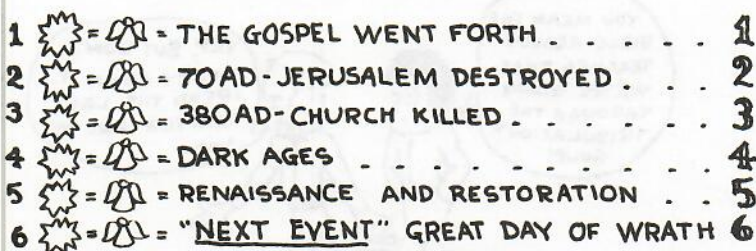 1 = = THE GOSPEL WENT FORTH. . . . . . 1
2 = = 70 AD - JERUSALEM DESTROYED . . . . 2
3 = = 380 AD - CHURCH KILLED . . . . . . 3
4 = = DARK AGES . . . . . . . . . 4
5 = = RENAISSANCE AND RESTORATION . . 5
6 = = "NEXT EVENT" GREAT DAY OF WRATH 6